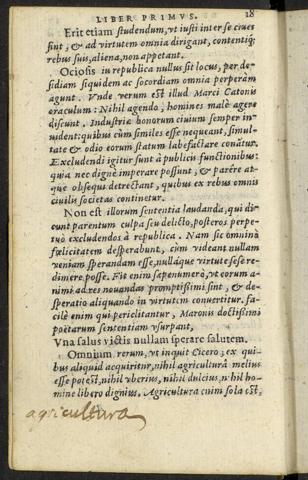 LIBER PRIMVS. 18
Erit etiam studendum, vt iusti inter se ciues
sint, & ad virtutem omnia dirigant, contentiq́;
rebus suis, aliena, non appetant.
Ociosis in republica nullus sit locus, per de-
sidiam siquidem ac socordiam omnia perperàm
agunt. Vnde verum est illud Marci Catonis
oraculum: Nihil agendo, homines malè agere
discunt. Industriæ honorum ciuium semper in-
uident: quibus cùm similes esse nequeant, simul-
tate & odio eorum statum labefactare conãtur.
Excludendi igitur sunt à publicis functionibus:
quia nec dignè imperare possunt, & parére at-
que obsequi detrectant, quibus ex rebus omnis
ciuilis societas continetur.
Non est illorum sententia laudanda, qui di-
cunt parentum culpa seu delicto, posteros perpe-
tuò excludendos à republica. Nam sic omninò
fœlicitatem desperabunt, cùm videant nullam
veniam sperandam esse, nullâque virtute sese re-
dimere posse. Fit enim sæpenumerò, vt eorum a-
nimi ad res nouandas promptissimi sint, & de-
speratio aliquando in virtutem conuertitur. fa-
cilè enim qui periclitantur, Maronis doctissimi
poëtarum sententiam vsurpant,
Vna salus victis nullam sperare salutem.
Omnium rerum, vt inquit Cicero, ex qui-
bus aliquid acquiritur, nihil agriculturâ melius
esse potest, nihil vberius, nihil dulcius, nihil ho-
mine libero dignius. Agricultura enim sola est,
agricultura